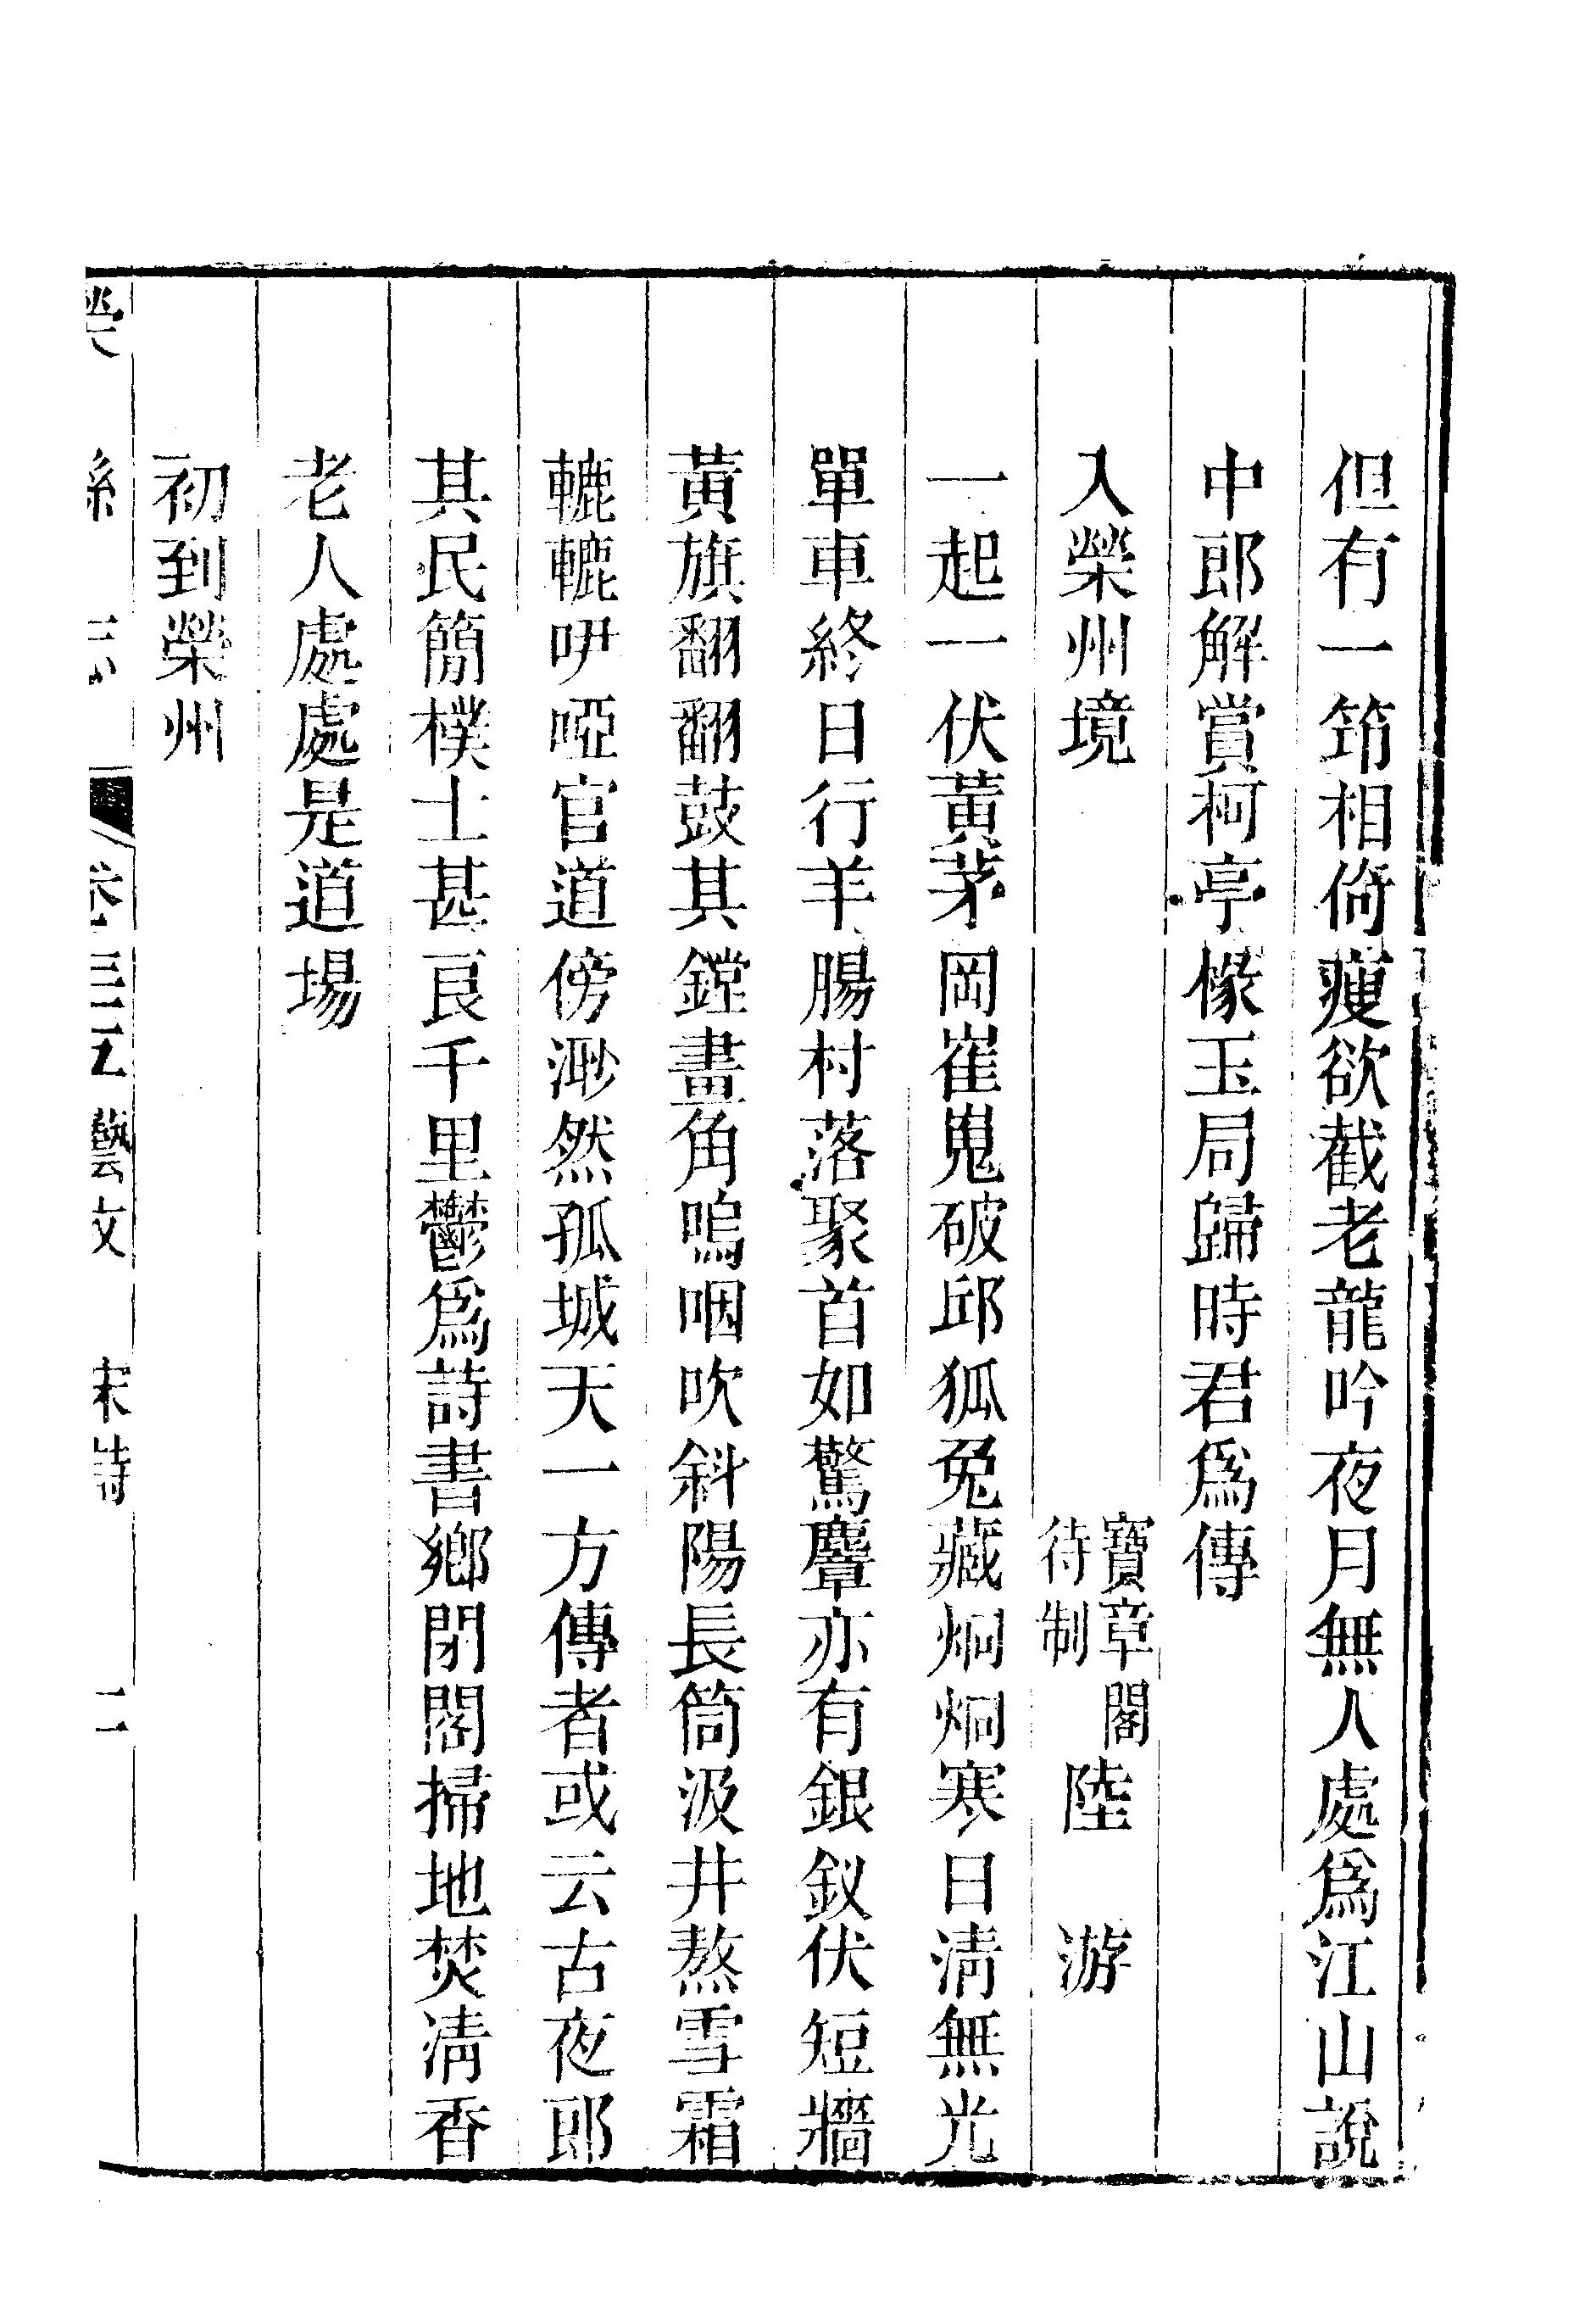 但有一筇相倚瘦欲截老龍吟夜月無人處爲江山說
中郎解賞柯亭椽玉局歸時君爲傳
入榮州境 寶章閣待制 陸游
一起一伏黃茅岡崔嵬破邱狐兔藏炯炯寒日清無光
單車終日行羊腸村落聚首如驚麞亦有銀釵伏短牆
黃旗翻翻鼓其鏜畫角嗚咽吹斜陽長筒汲井熬雪霜
轆轆咿啞官道傍渺然孤城天一方傳者或云古夜郎
其民簡樸士甚良千里鬱爲詩書鄉閉閣掃地焚清香
老人處處是道場
初到榮州
榮縣志 卷三五 藝文 宋詩 二